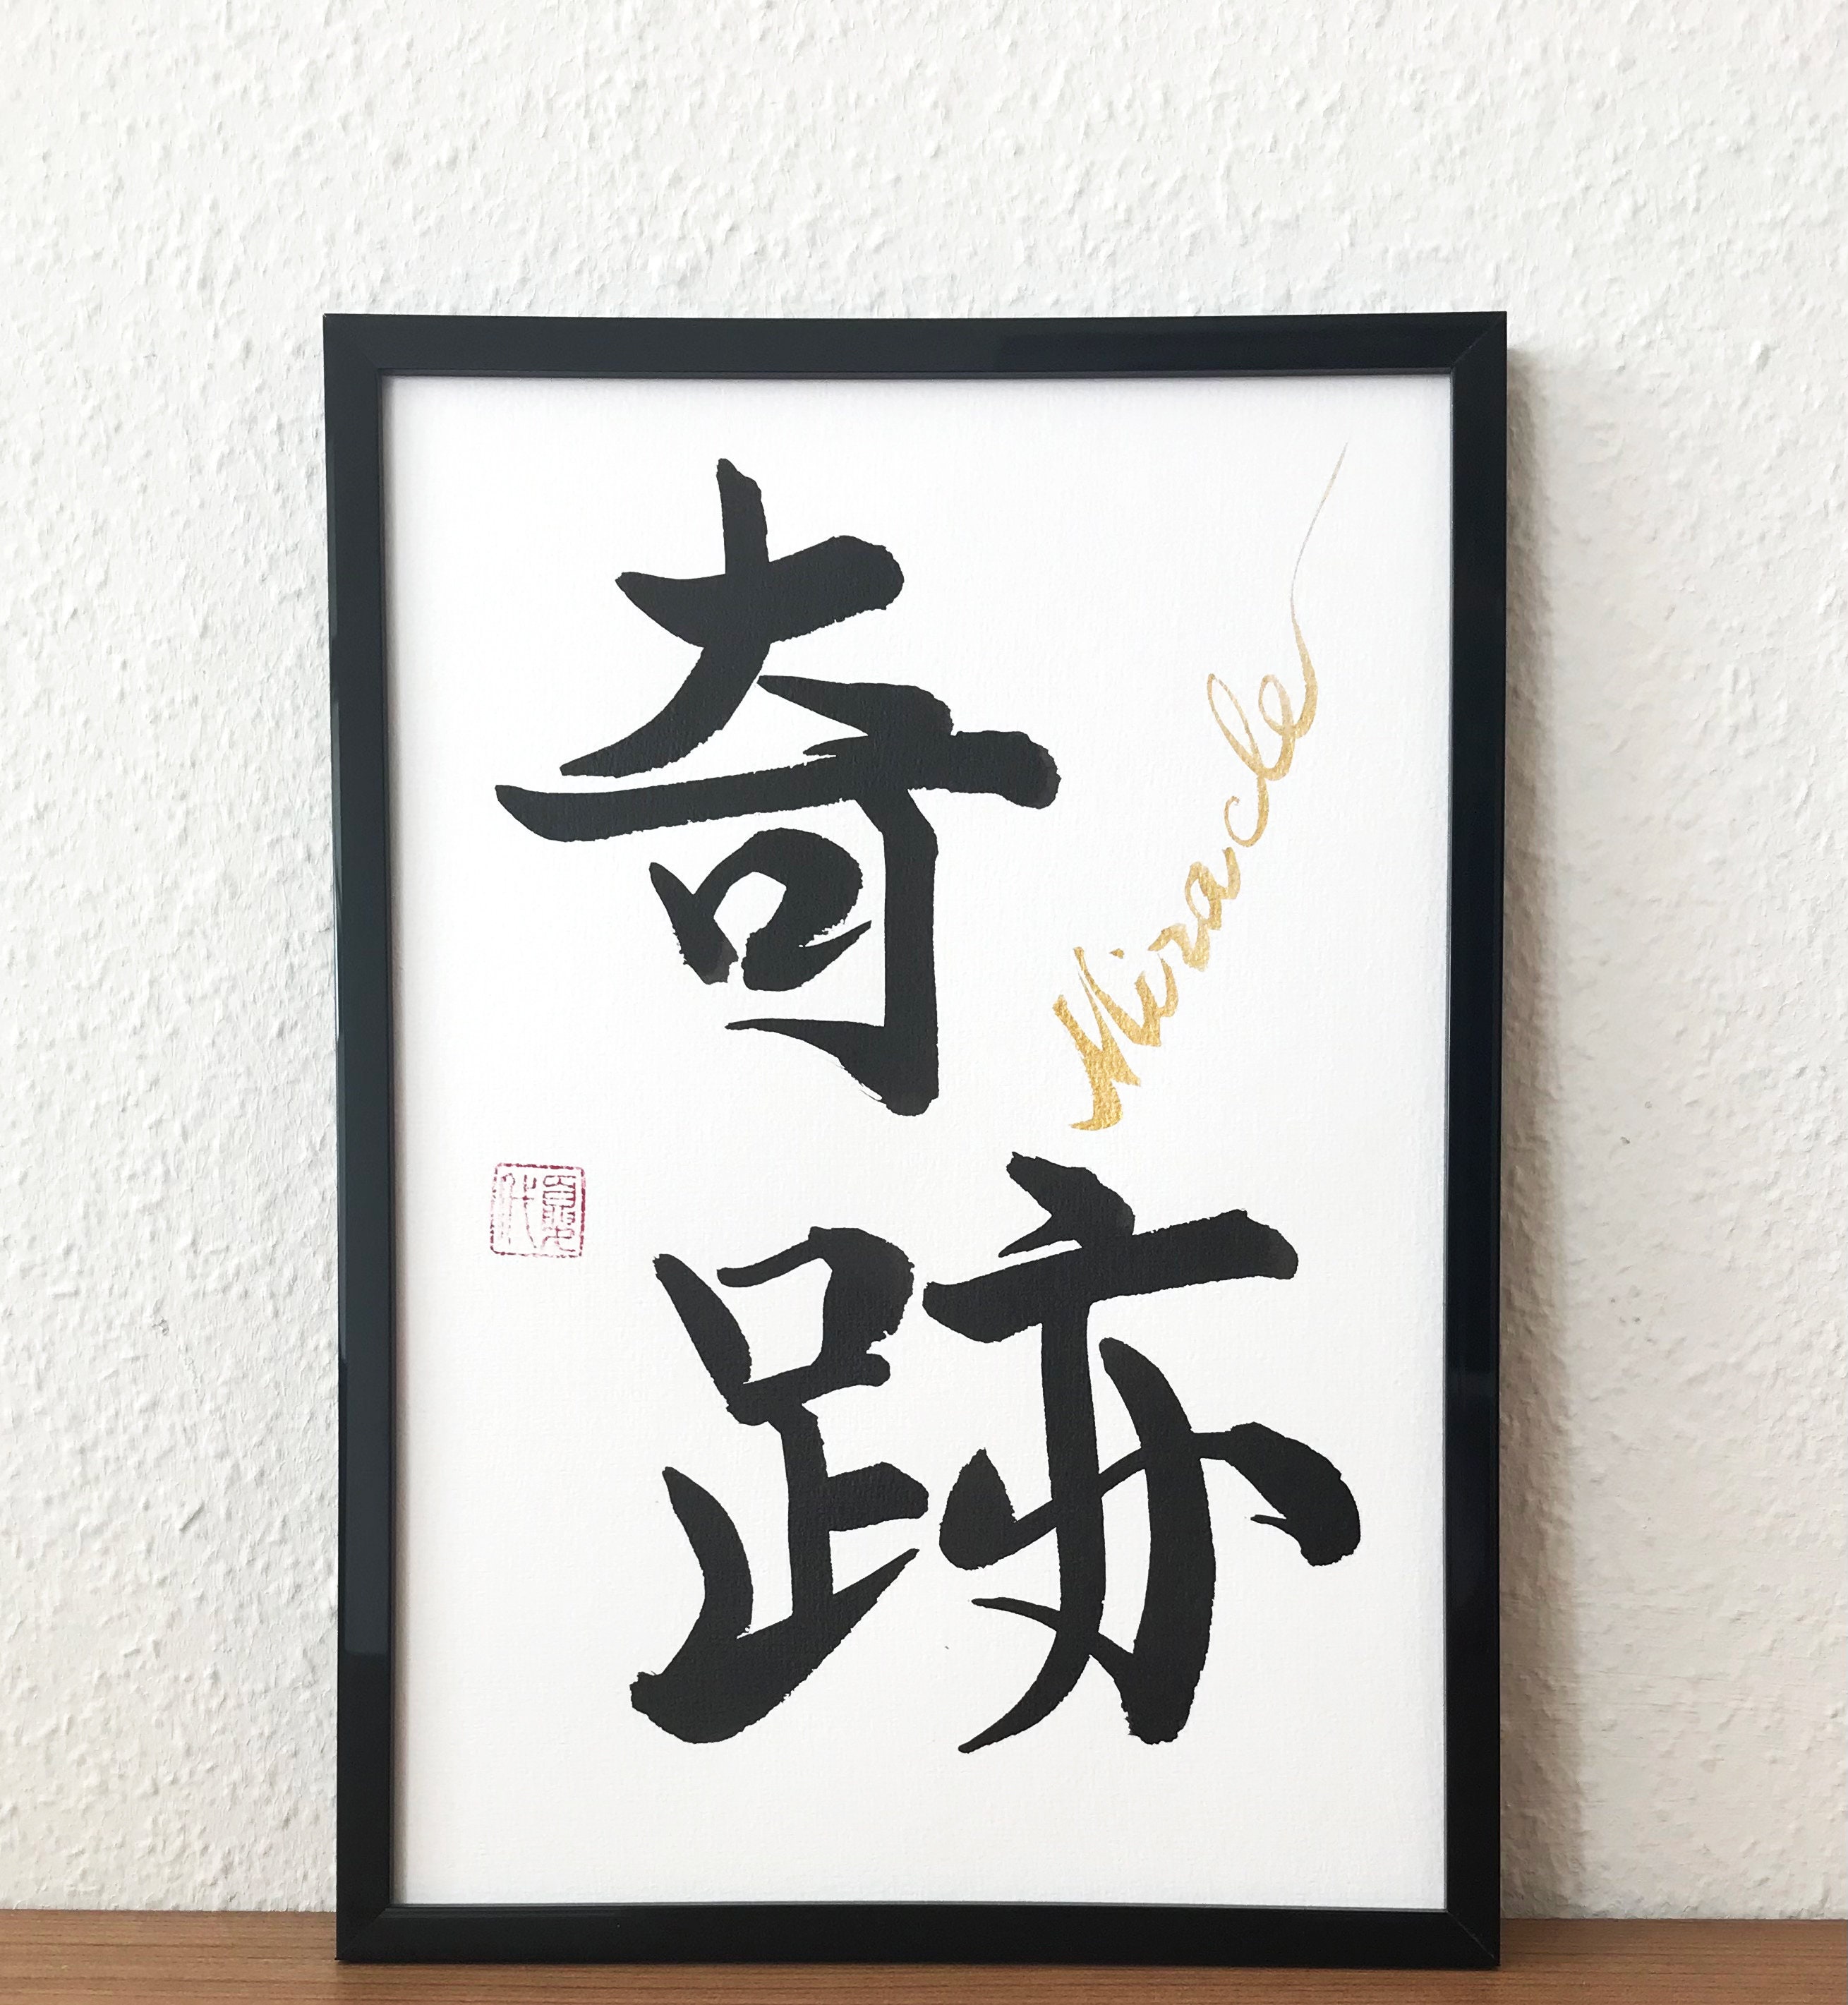 奇跡
Miracle